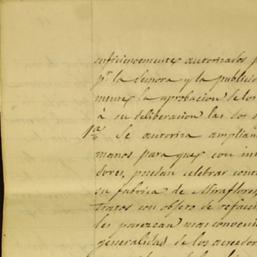 suficientemente autorizados p
pr. la demora y la publicid
mente la aprobacion de los
á su deliberacion las dos s
1a. Se autoriza amplia
manos para que con in
dores, puedan celebrar cont
su fabrica de Miraflores,
tratos con objeto de refacci
les parezcan mas convenie
generalidad de los acredor